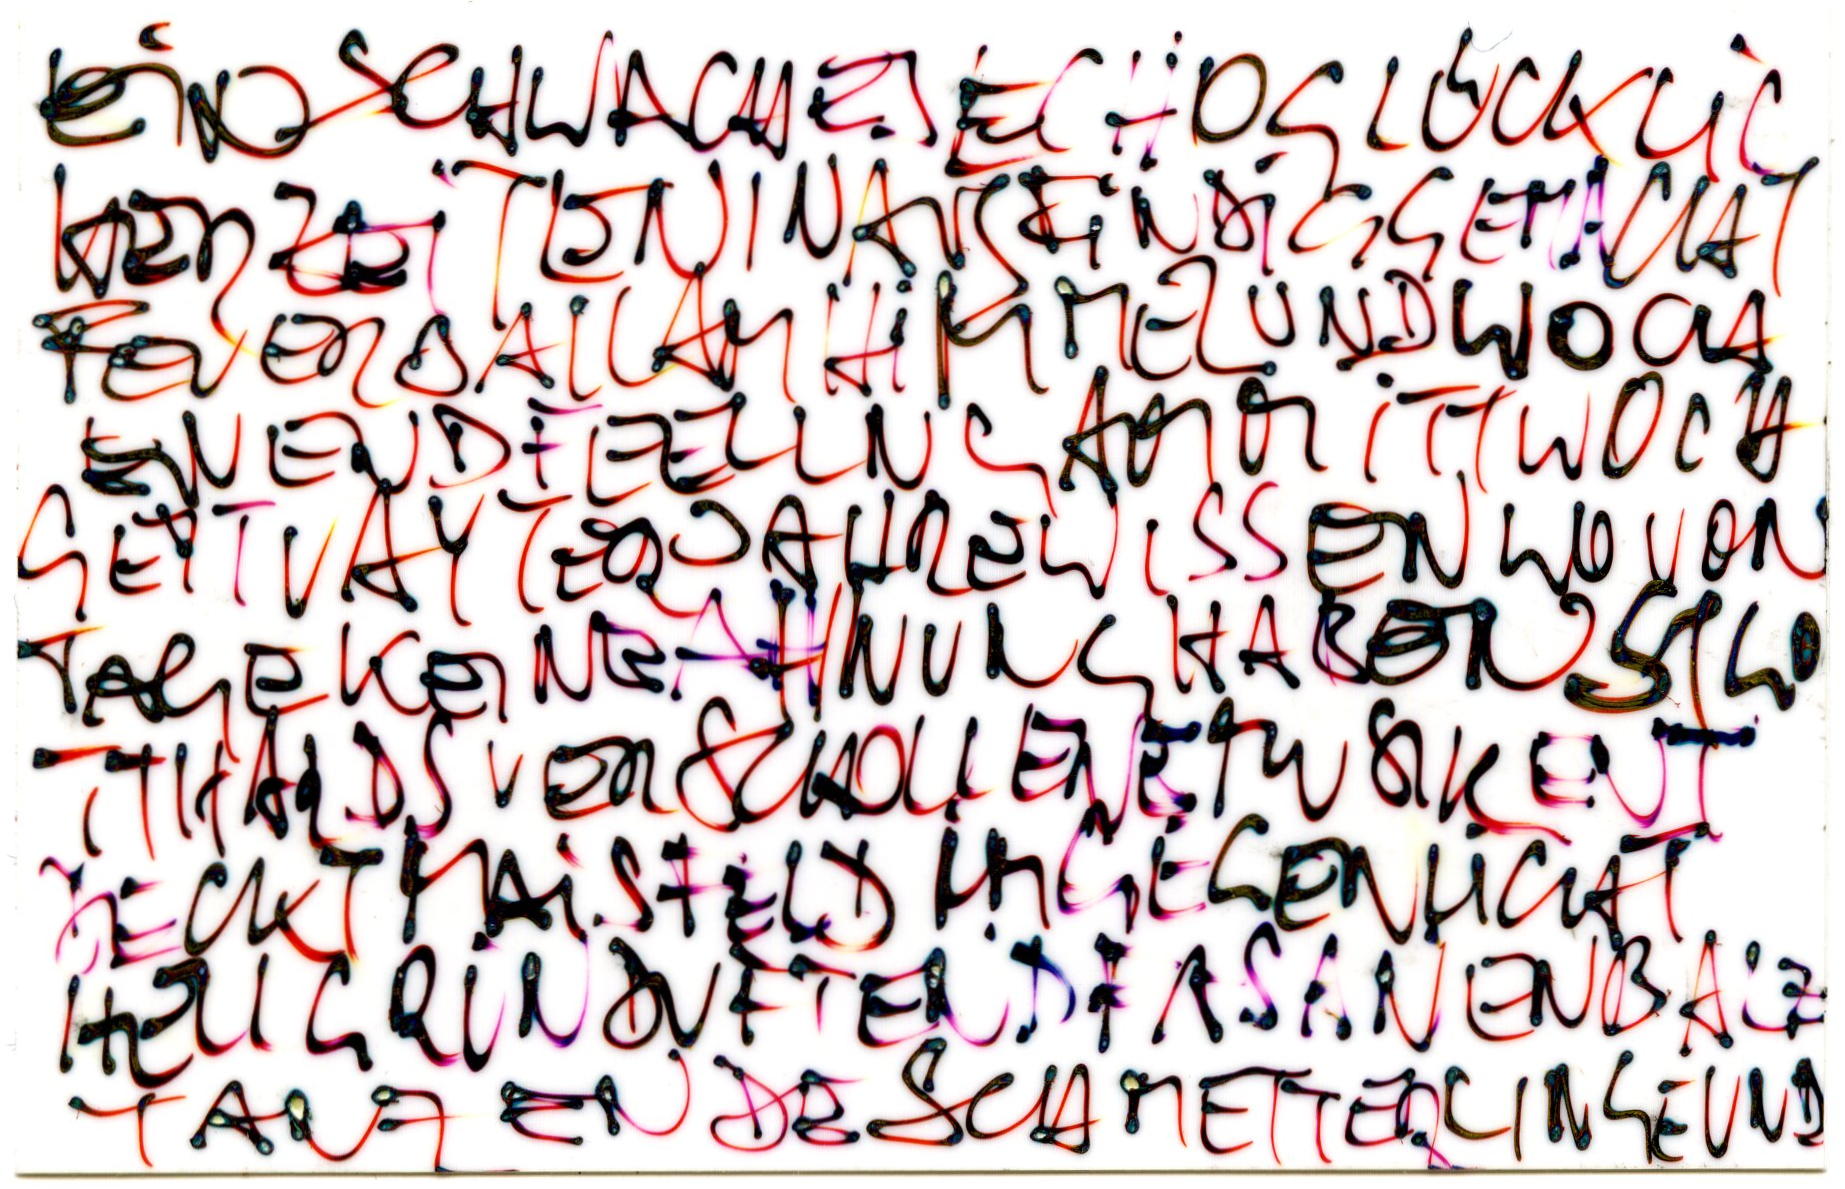 EIN SCHWACHES ECHO GLÜCKLIC
HER ZEITEN IN AUSFINDIG GEMACHT
FEUERBALL AM HIMMEL UND WOCH
ENENDFEELING AM MITTWOCH
GETTY VATTER JAHRE WISSEN WOVON
TAGE KEINE AHNUNG HABEN
VERSCHOLLEN NETWORK ENT
DECKT MAISFELD IM GEGENLICHT
HELLGRÜN DUFTEND FASANENBALZ
TANZENDE SCHMETTERLINGE UND